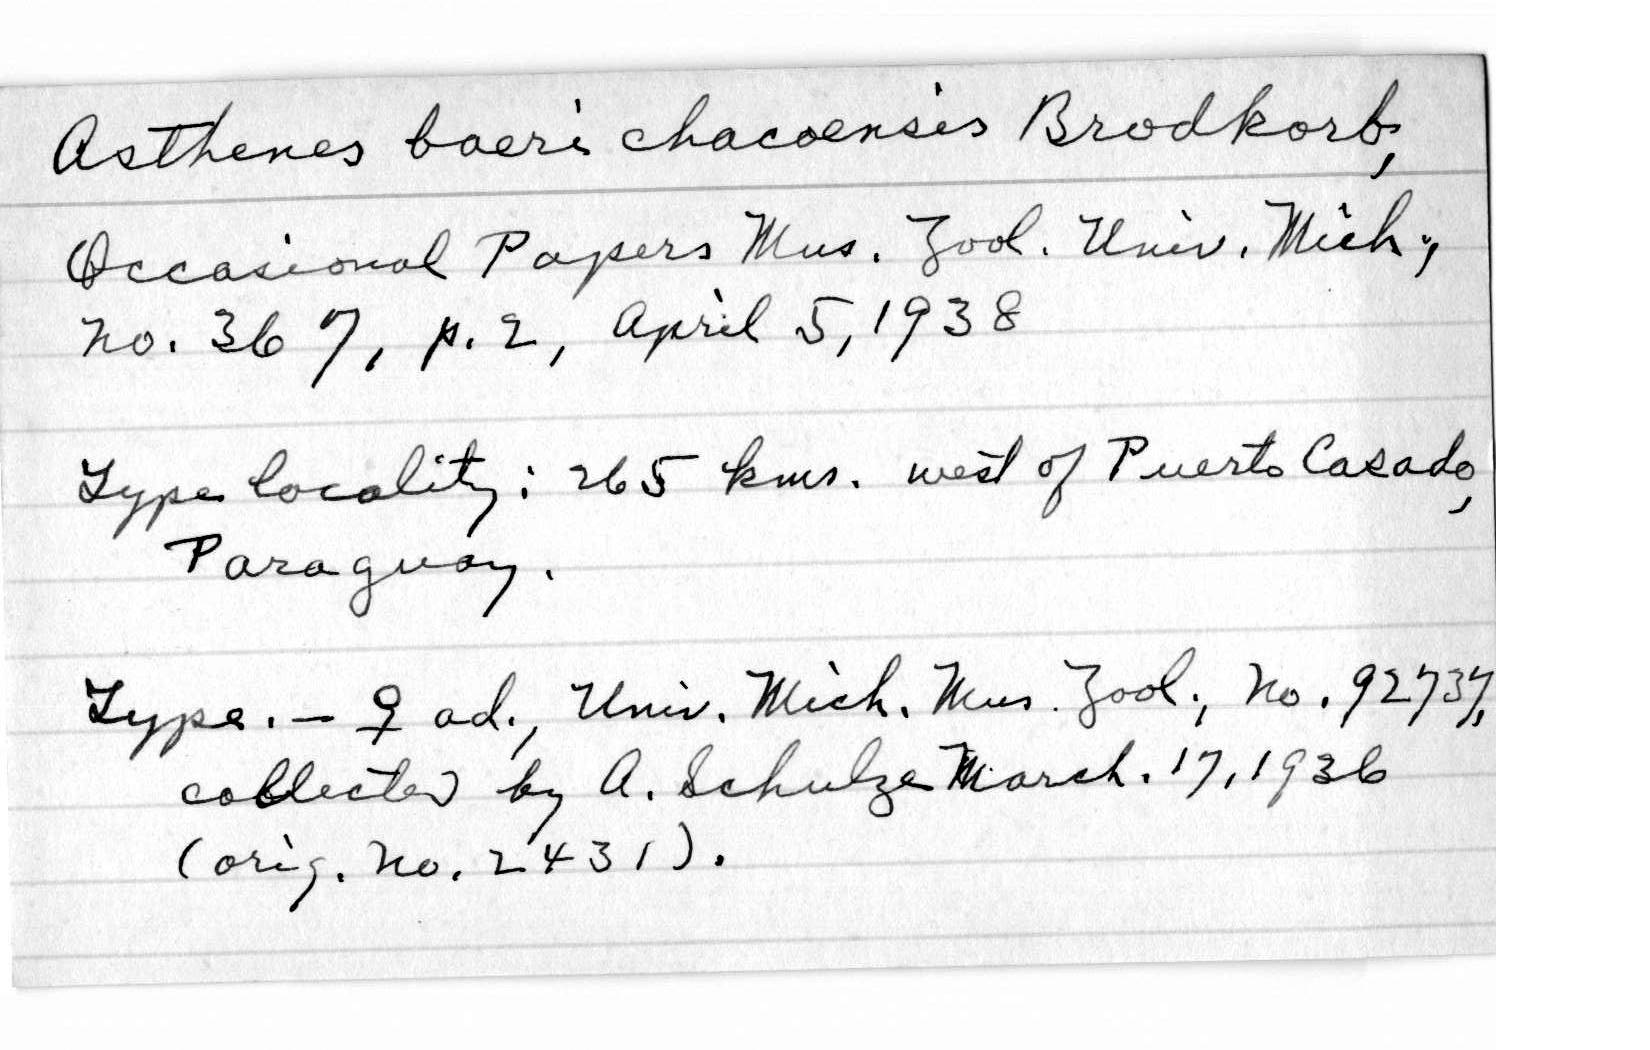 Asthenes baeri chacoensis Brodkorb,
Occasional Papers Mus. Zool. Univ. Mich.,
no. 367, p. 2, April 5, 1938
Type locality: 265 kms. west of Puerto Casado,
Paraguay.
Type. — ♀ ad., Univ. Mich. Mus. Zool., No. 92737,
collected by A. Schulze March. 17, 1936
(orig. no. 2431).